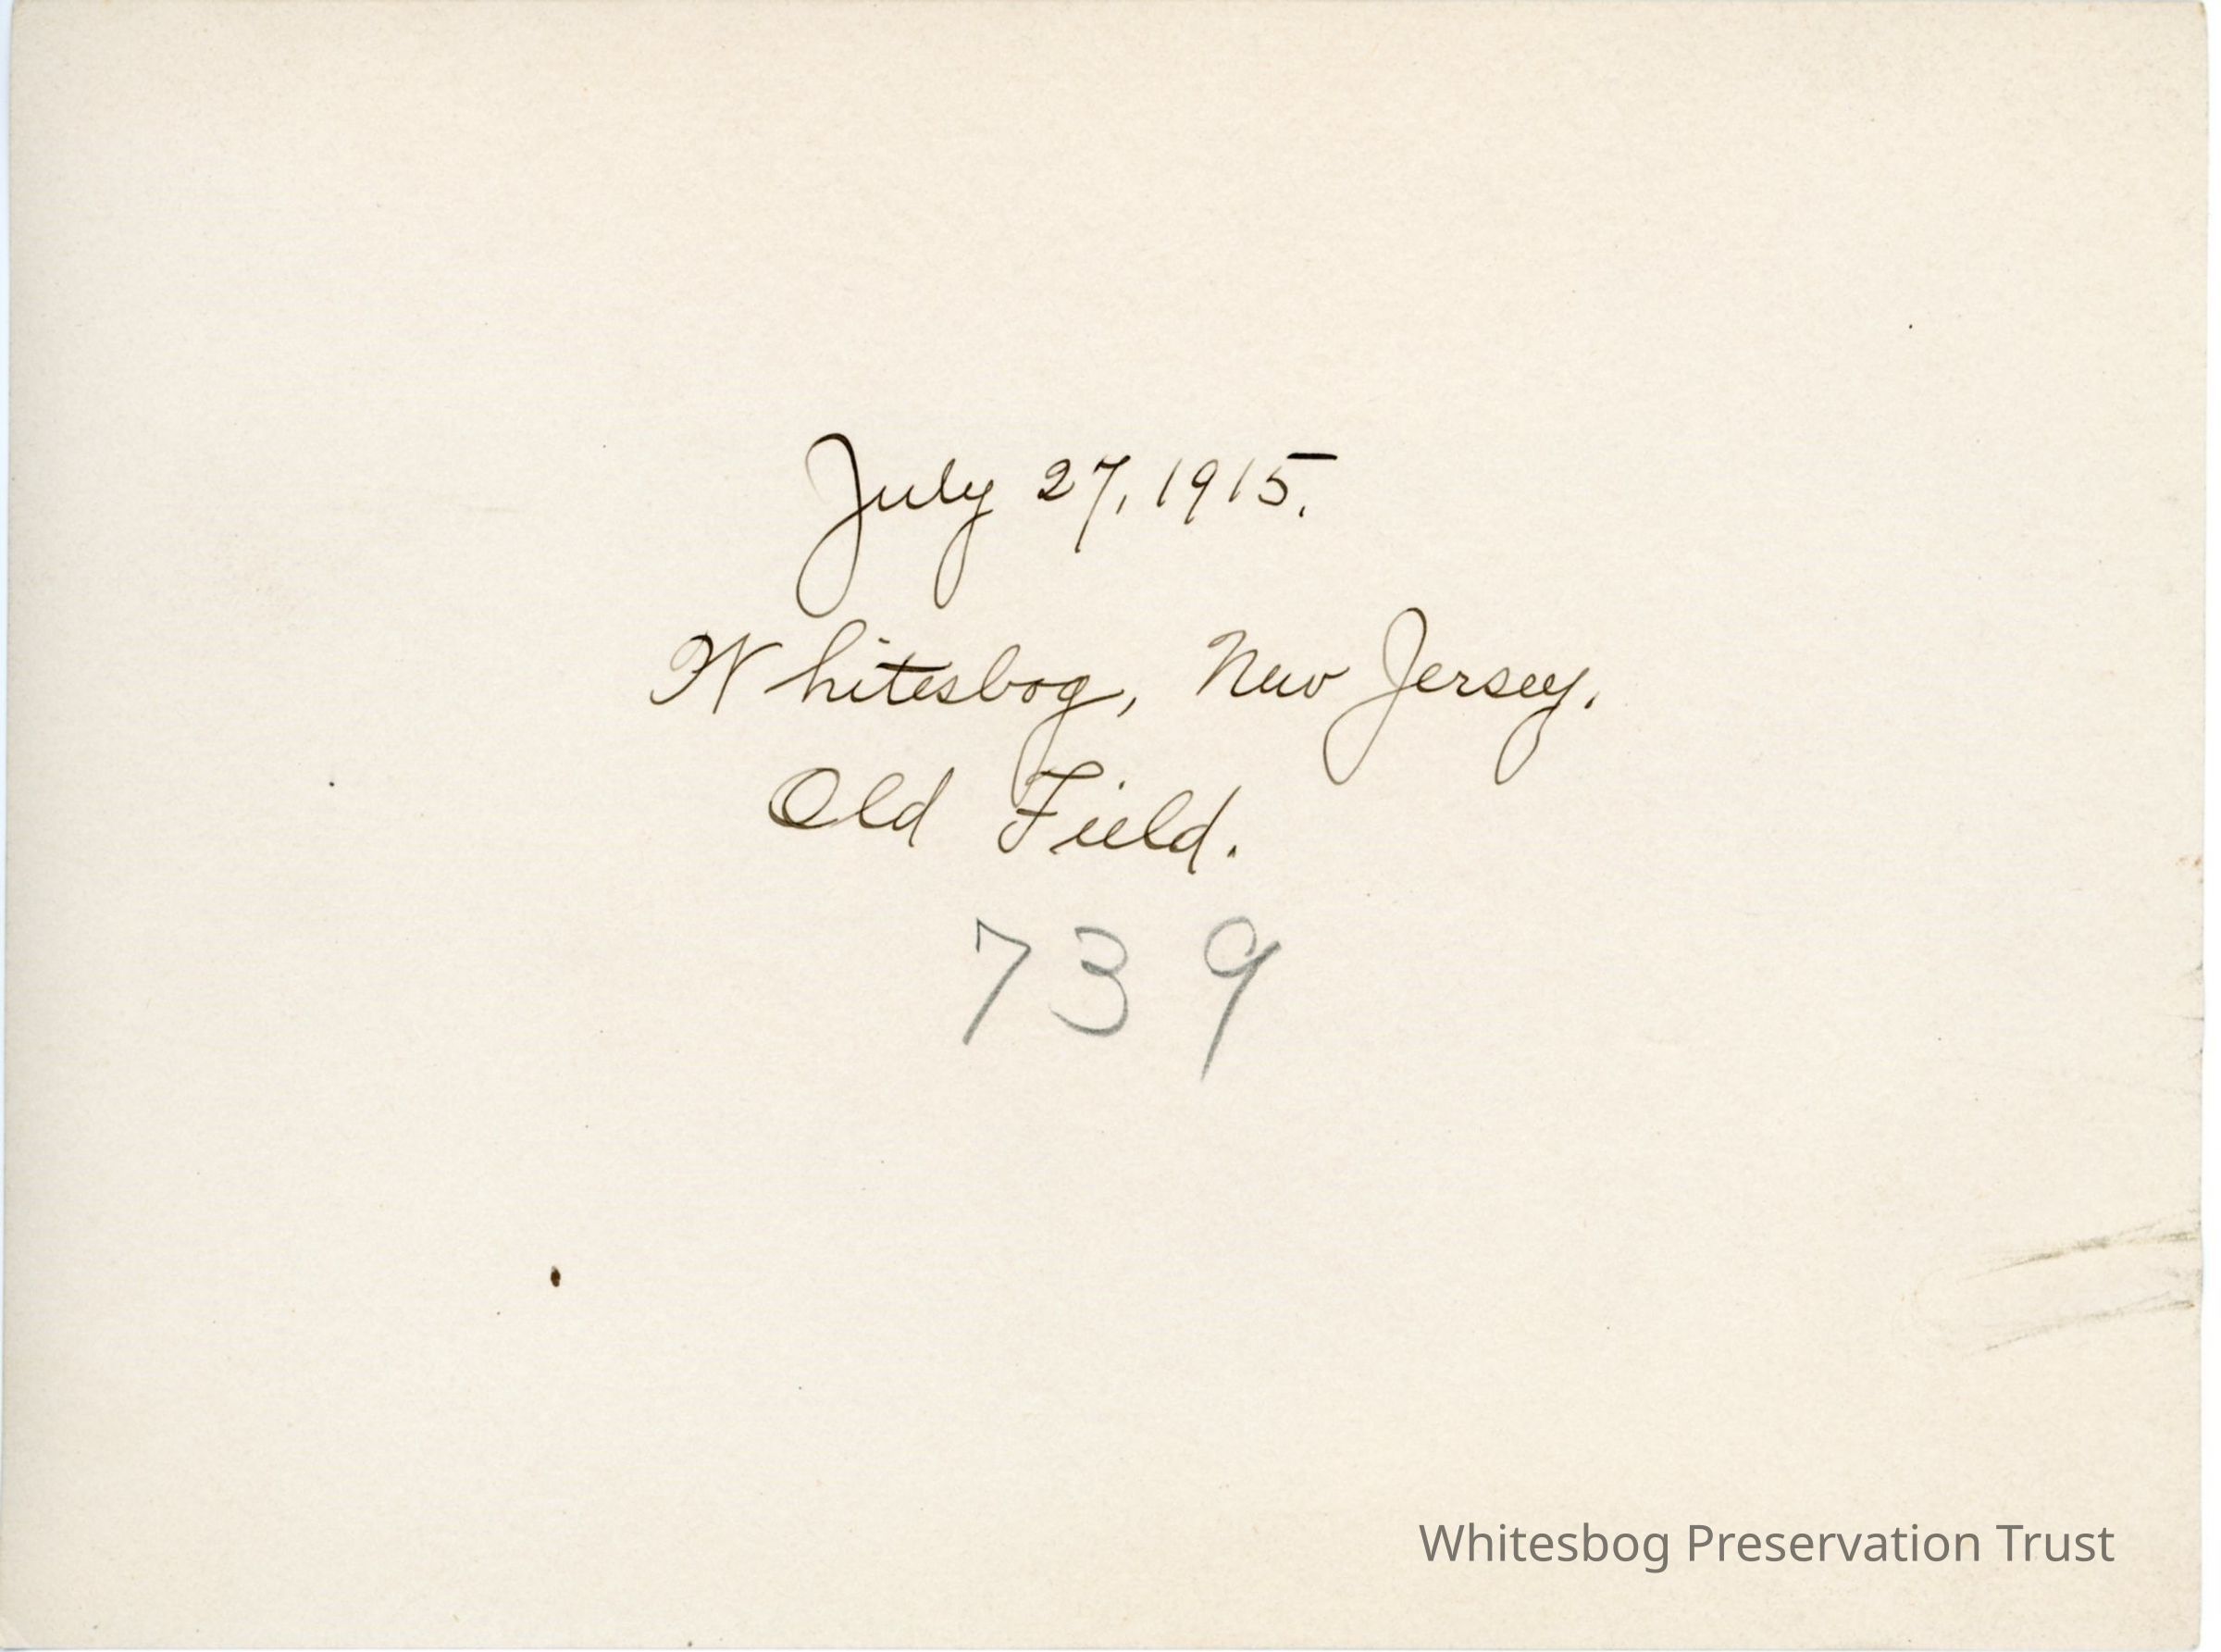 July 27, 1915.
Whitesbog, New Jersey.
Old Field.
739
Whitesbog Preservation Trust